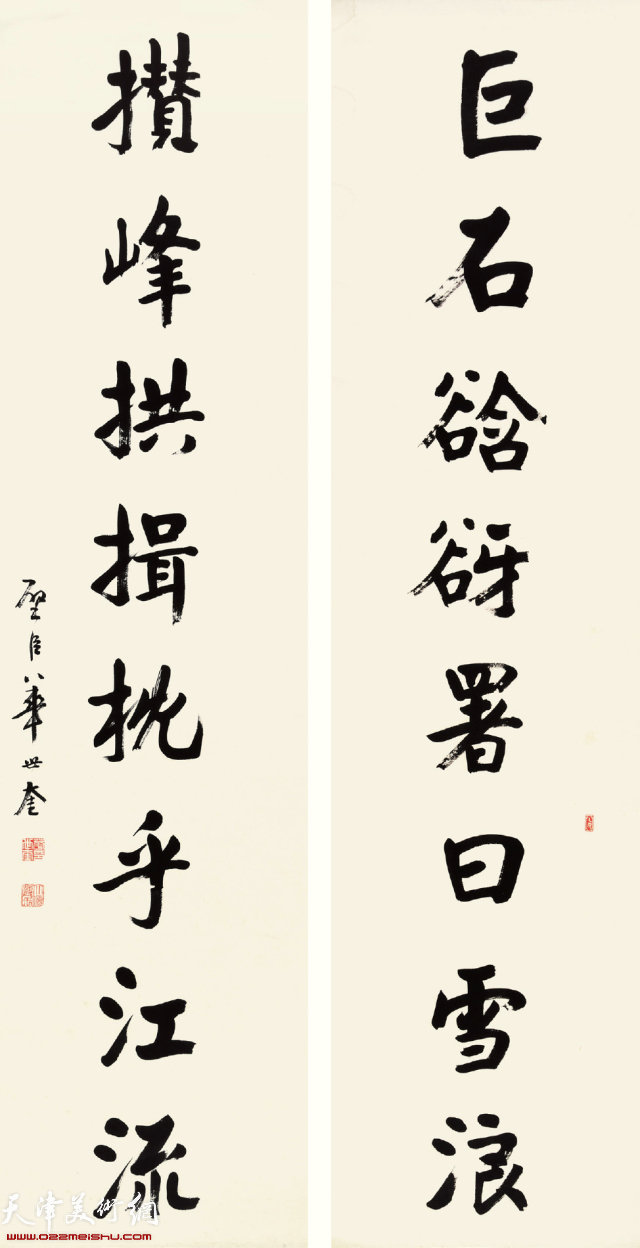 巨石谽谺署曰雪浪
攅峰拱揖枕乎江流
壁臣華世奎
天津美術網
www.022meishu.com